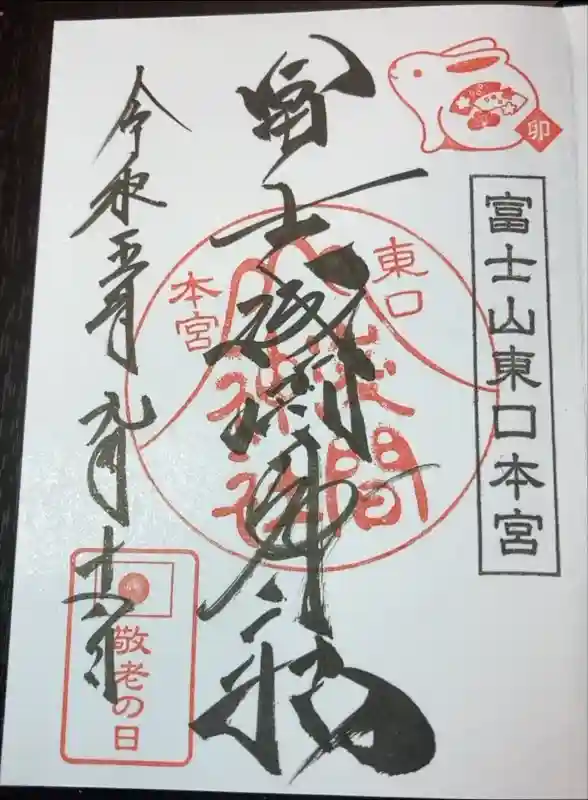 卯
富士山東口本宮
冨士浅間神社
東口
本宮
淺間
神社
令和五年九月十八日
敬老の日